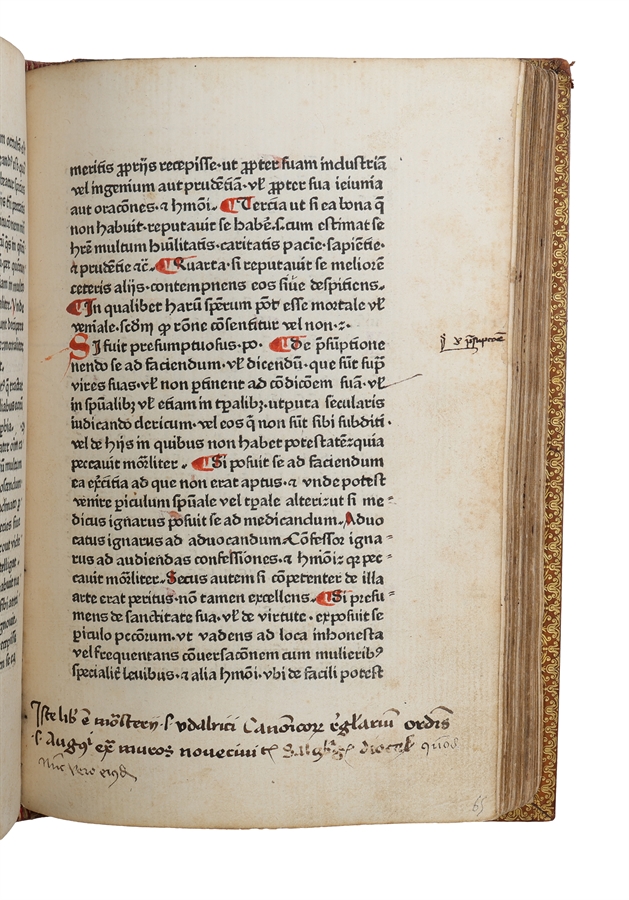 meritis ꝓprijs recepisse·ut ꝓpter suam industriã
vel ingenium aut prudẽtiã·vł ꝓpter sua ieiunia
aut oracões·⁊ hmõi·¶Tercia ut si ea bona q̃
non habuit·reputauit se habẽ·Scum estimat se
hrẽ multum huĩlitatis·caritatis pacie·sapiẽtie·
⁊ prudẽtie ⁊c̃·¶Quarta·si reputauit se meliorẽ
ceteris alijs·contempnens eos siue despiciens·
¶In qualibet harũ spẽrum põt esse mortale vł
veniale·scdm ꝙ rõne cõsentitur vel non·:·
SI fuit presumptuosus·po·¶De p̃suptione
nendo se ad faciendum·vł dicendũ·que sũt sup̃
vires suas·vł non ꝑtinent ad cõdicõem suã·vł
in spũalibꝫ vł etiam in tꝑalibꝫ·utputa secularis
iudicando clericum·vel eos q̃ non sũt sibi subditi·
vel de hijs in quibus non habet potestatẽ:quia
peccauit mõrliter·¶Si posuit se ad faciendum
ea exẽrcitia ad que non erat aptus·⁊ vnde potest
venire ꝑiculum spũale vel tꝑale alteri:ut si me⸗
dicus ignarus posuit se ad medicandum·Aduo
catus ignarus ad aduocandum·Cõfessor igna⸗
rus ad audiendas confessiones·⁊ hmõi:qꝛ pec⸗
cauit mõrliter·Secus autem si cõpetenter de illa
arte erat peritus·nõ tamen excellens·¶Si presu⸗
mens de sanctitate sua·vł de virtute·exposuit se
ꝑiculo pcc̃orum·vt vadens ad loca inhonesta
vel frequentans cõuersacõnem cum mulieribꝰ
specialit̃ leuibus·⁊ alia hmõi·vbi de facili potest
Iste lib̃ ẽ mõsterij·s·vdalrici Canõicoꝝ rẽglariũ ordĩs
·s·Augꝰi ext̃ muros novecivitꝭ Salczbg̃ꝭ diocesꝭ quod
Nũc vero
65